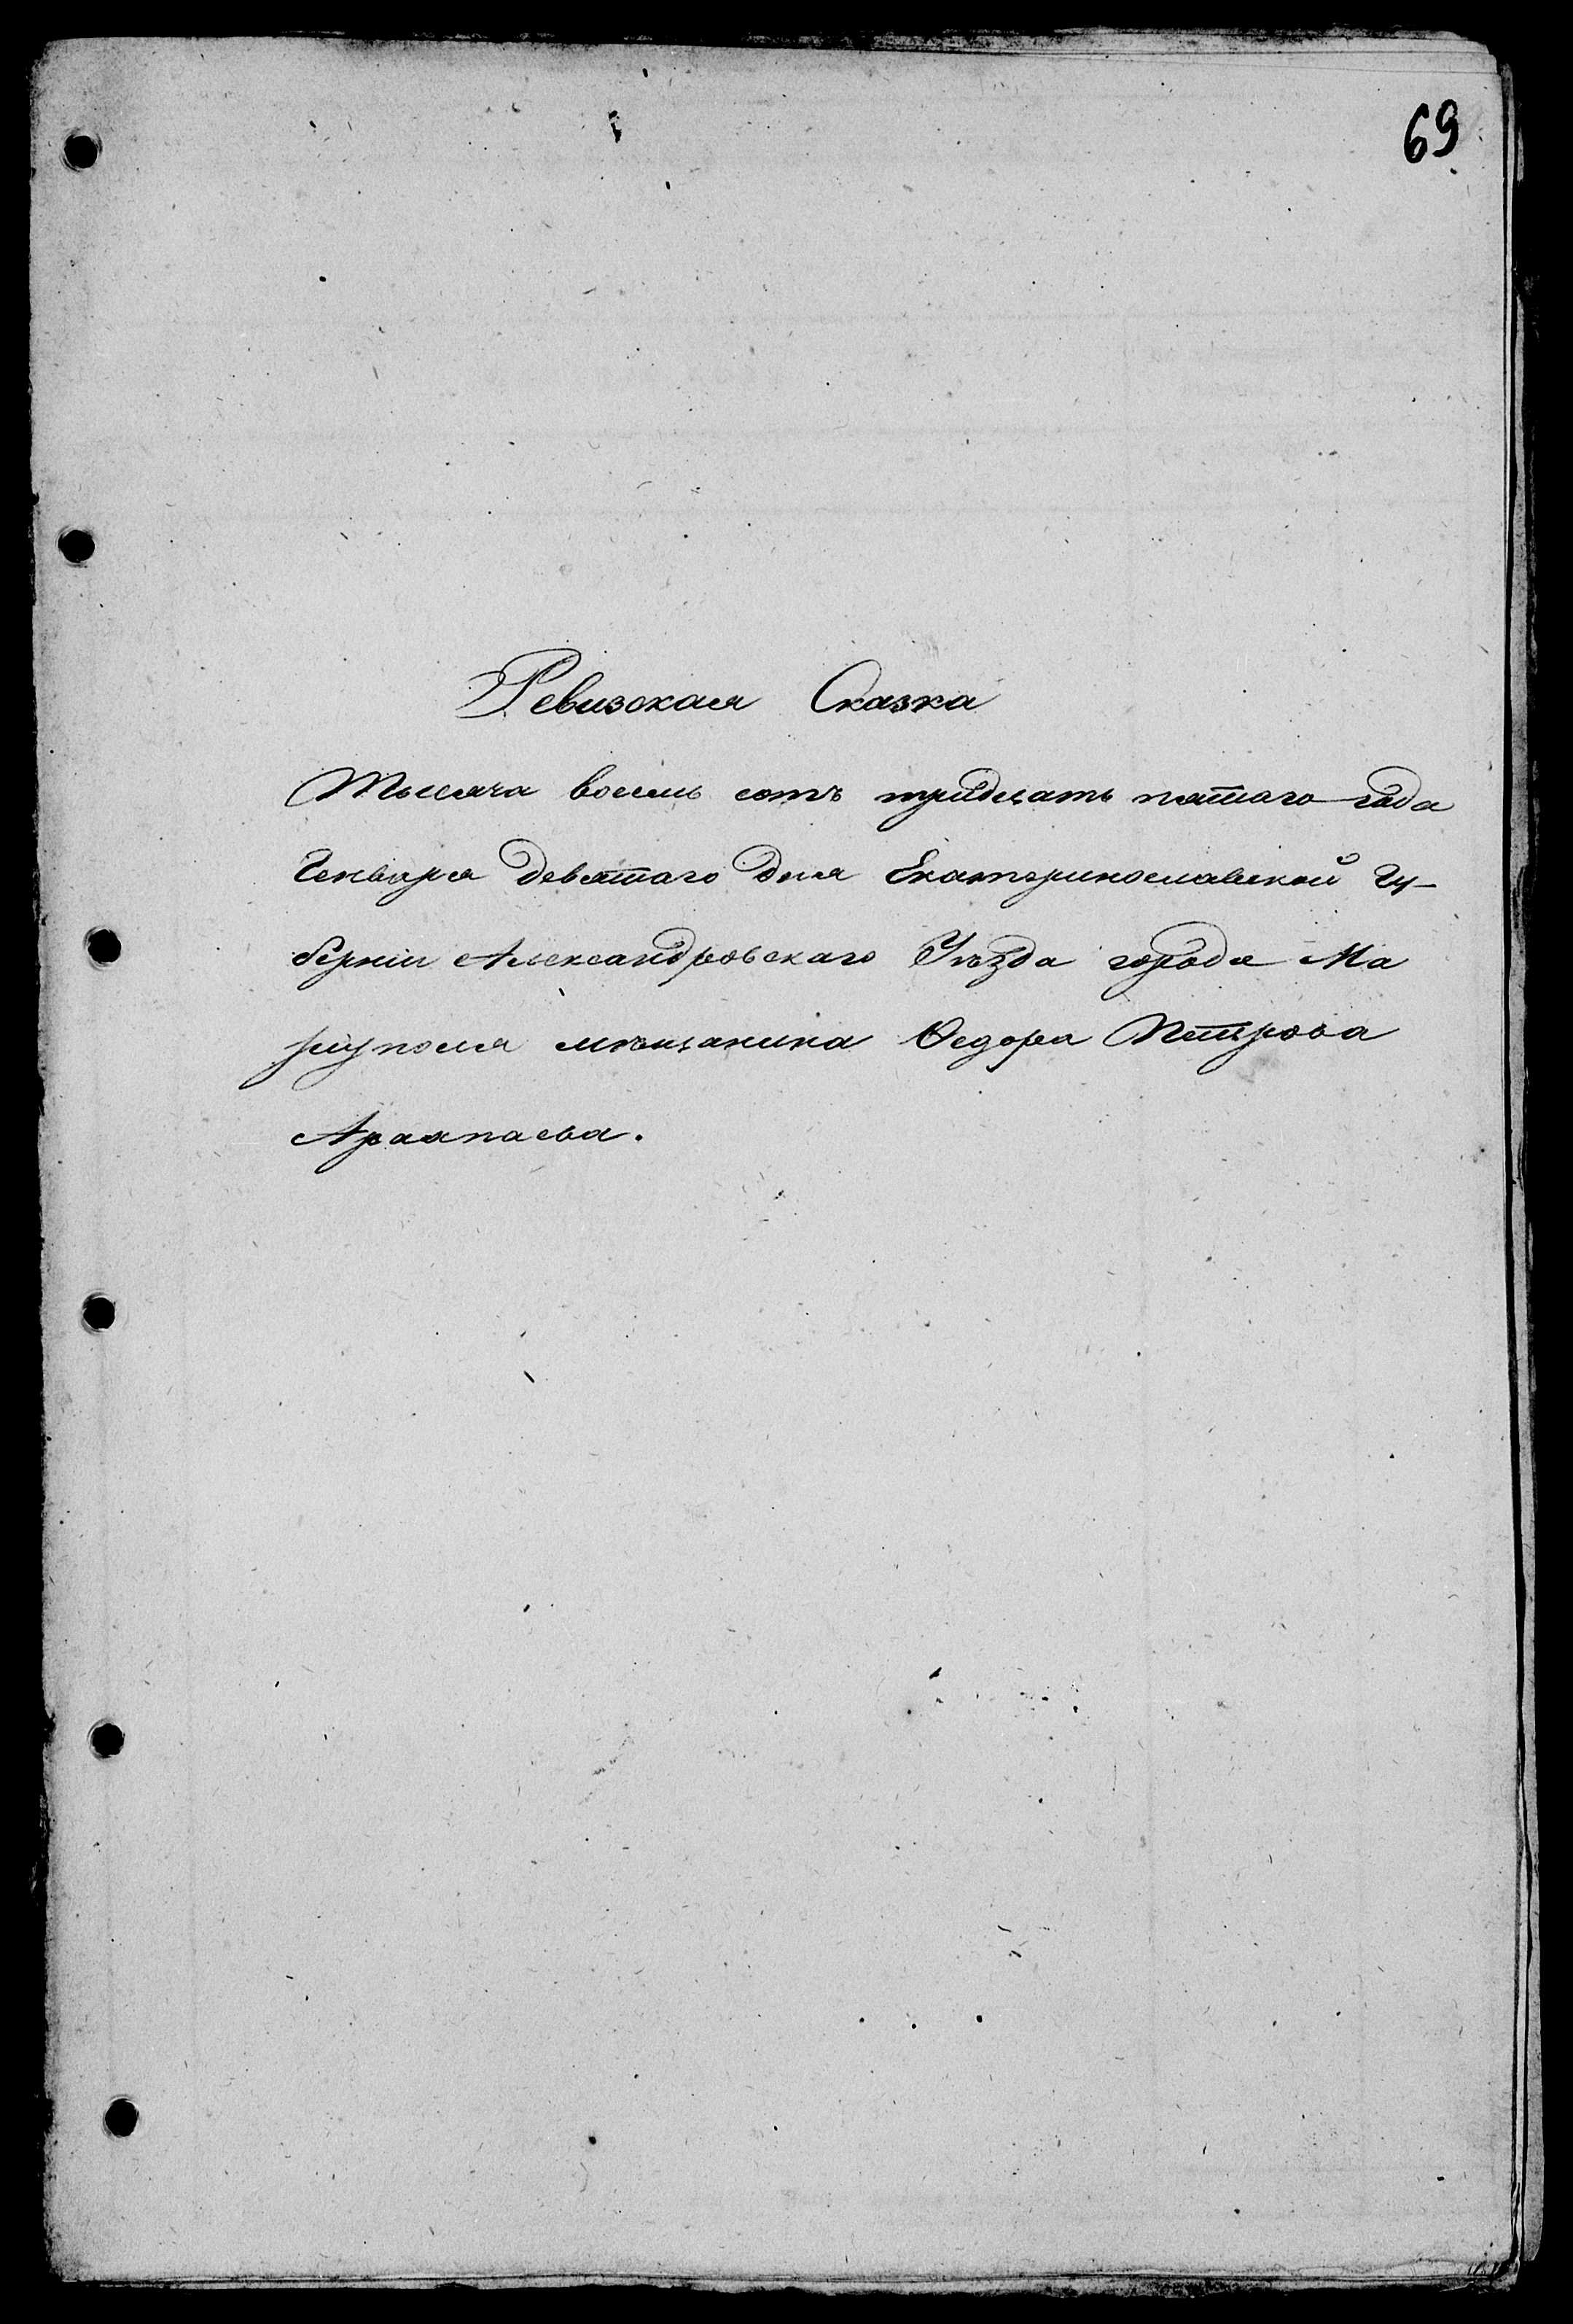 69
Ревизская Сказка
Тысяча восемь сотъ тридцать пятаго года
Генваря девятаго дня Екатеринославской Гу-
берніи Александровскаго Уѣзда города Ма
ріуполя мѣщанина Ѳедора Петрова